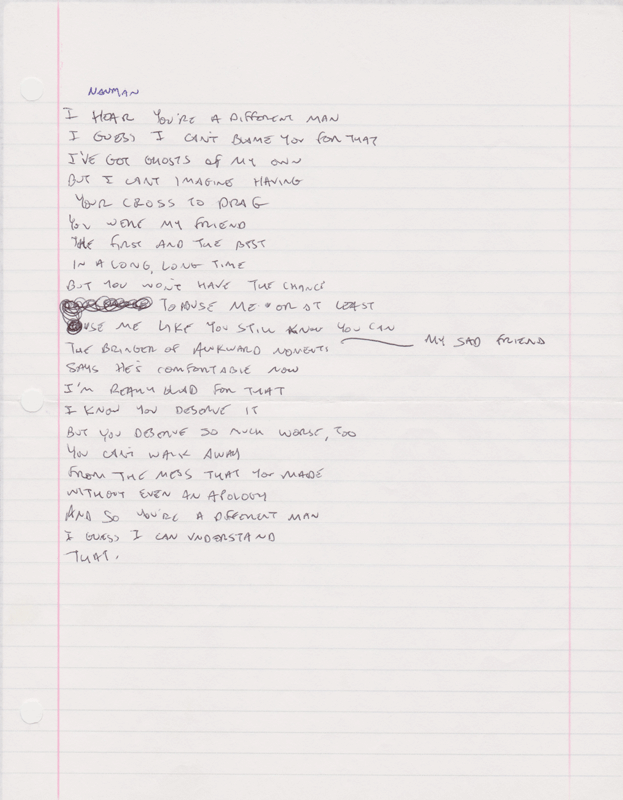 NEWMAN
I HEAR YOU'RE A DIFFERENT MAN
I GUESS I CAN'T BLAME YOU FOR THAT
I'VE GOT GHOSTS OF MY OWN
BUT I CANT IMAGINE HAVING
YOUR CROSS TO DRAG
YOU WERE MY FRIEND
THE FIRST AND THE BEST
IN A LONG, LONG TIME
BUT YOU WON'T HAVE THE CHANCE
TO ABUSE ME OR AT LEAST
USE ME LIKE YOU STILL KNOW YOU CAN MY SAD FRIEND
THE BRINGER OF AWKWARD MOMENTS
SAYS HE'S COMFORTABLE NOW
I'M REALLY GLAD FOR THAT
I KNOW YOU DESERVE IT
BUT YOU DESERVE SO MUCH WORSE, TOO
YOU CAN'T WALK AWAY
FROM THE MESS THAT YOU MADE
WITHOUT EVEN AN APOLOGY
AND SO YOU'RE A DIFFERENT MAN
I GUESS I CAN UNDERSTAND
THAT.